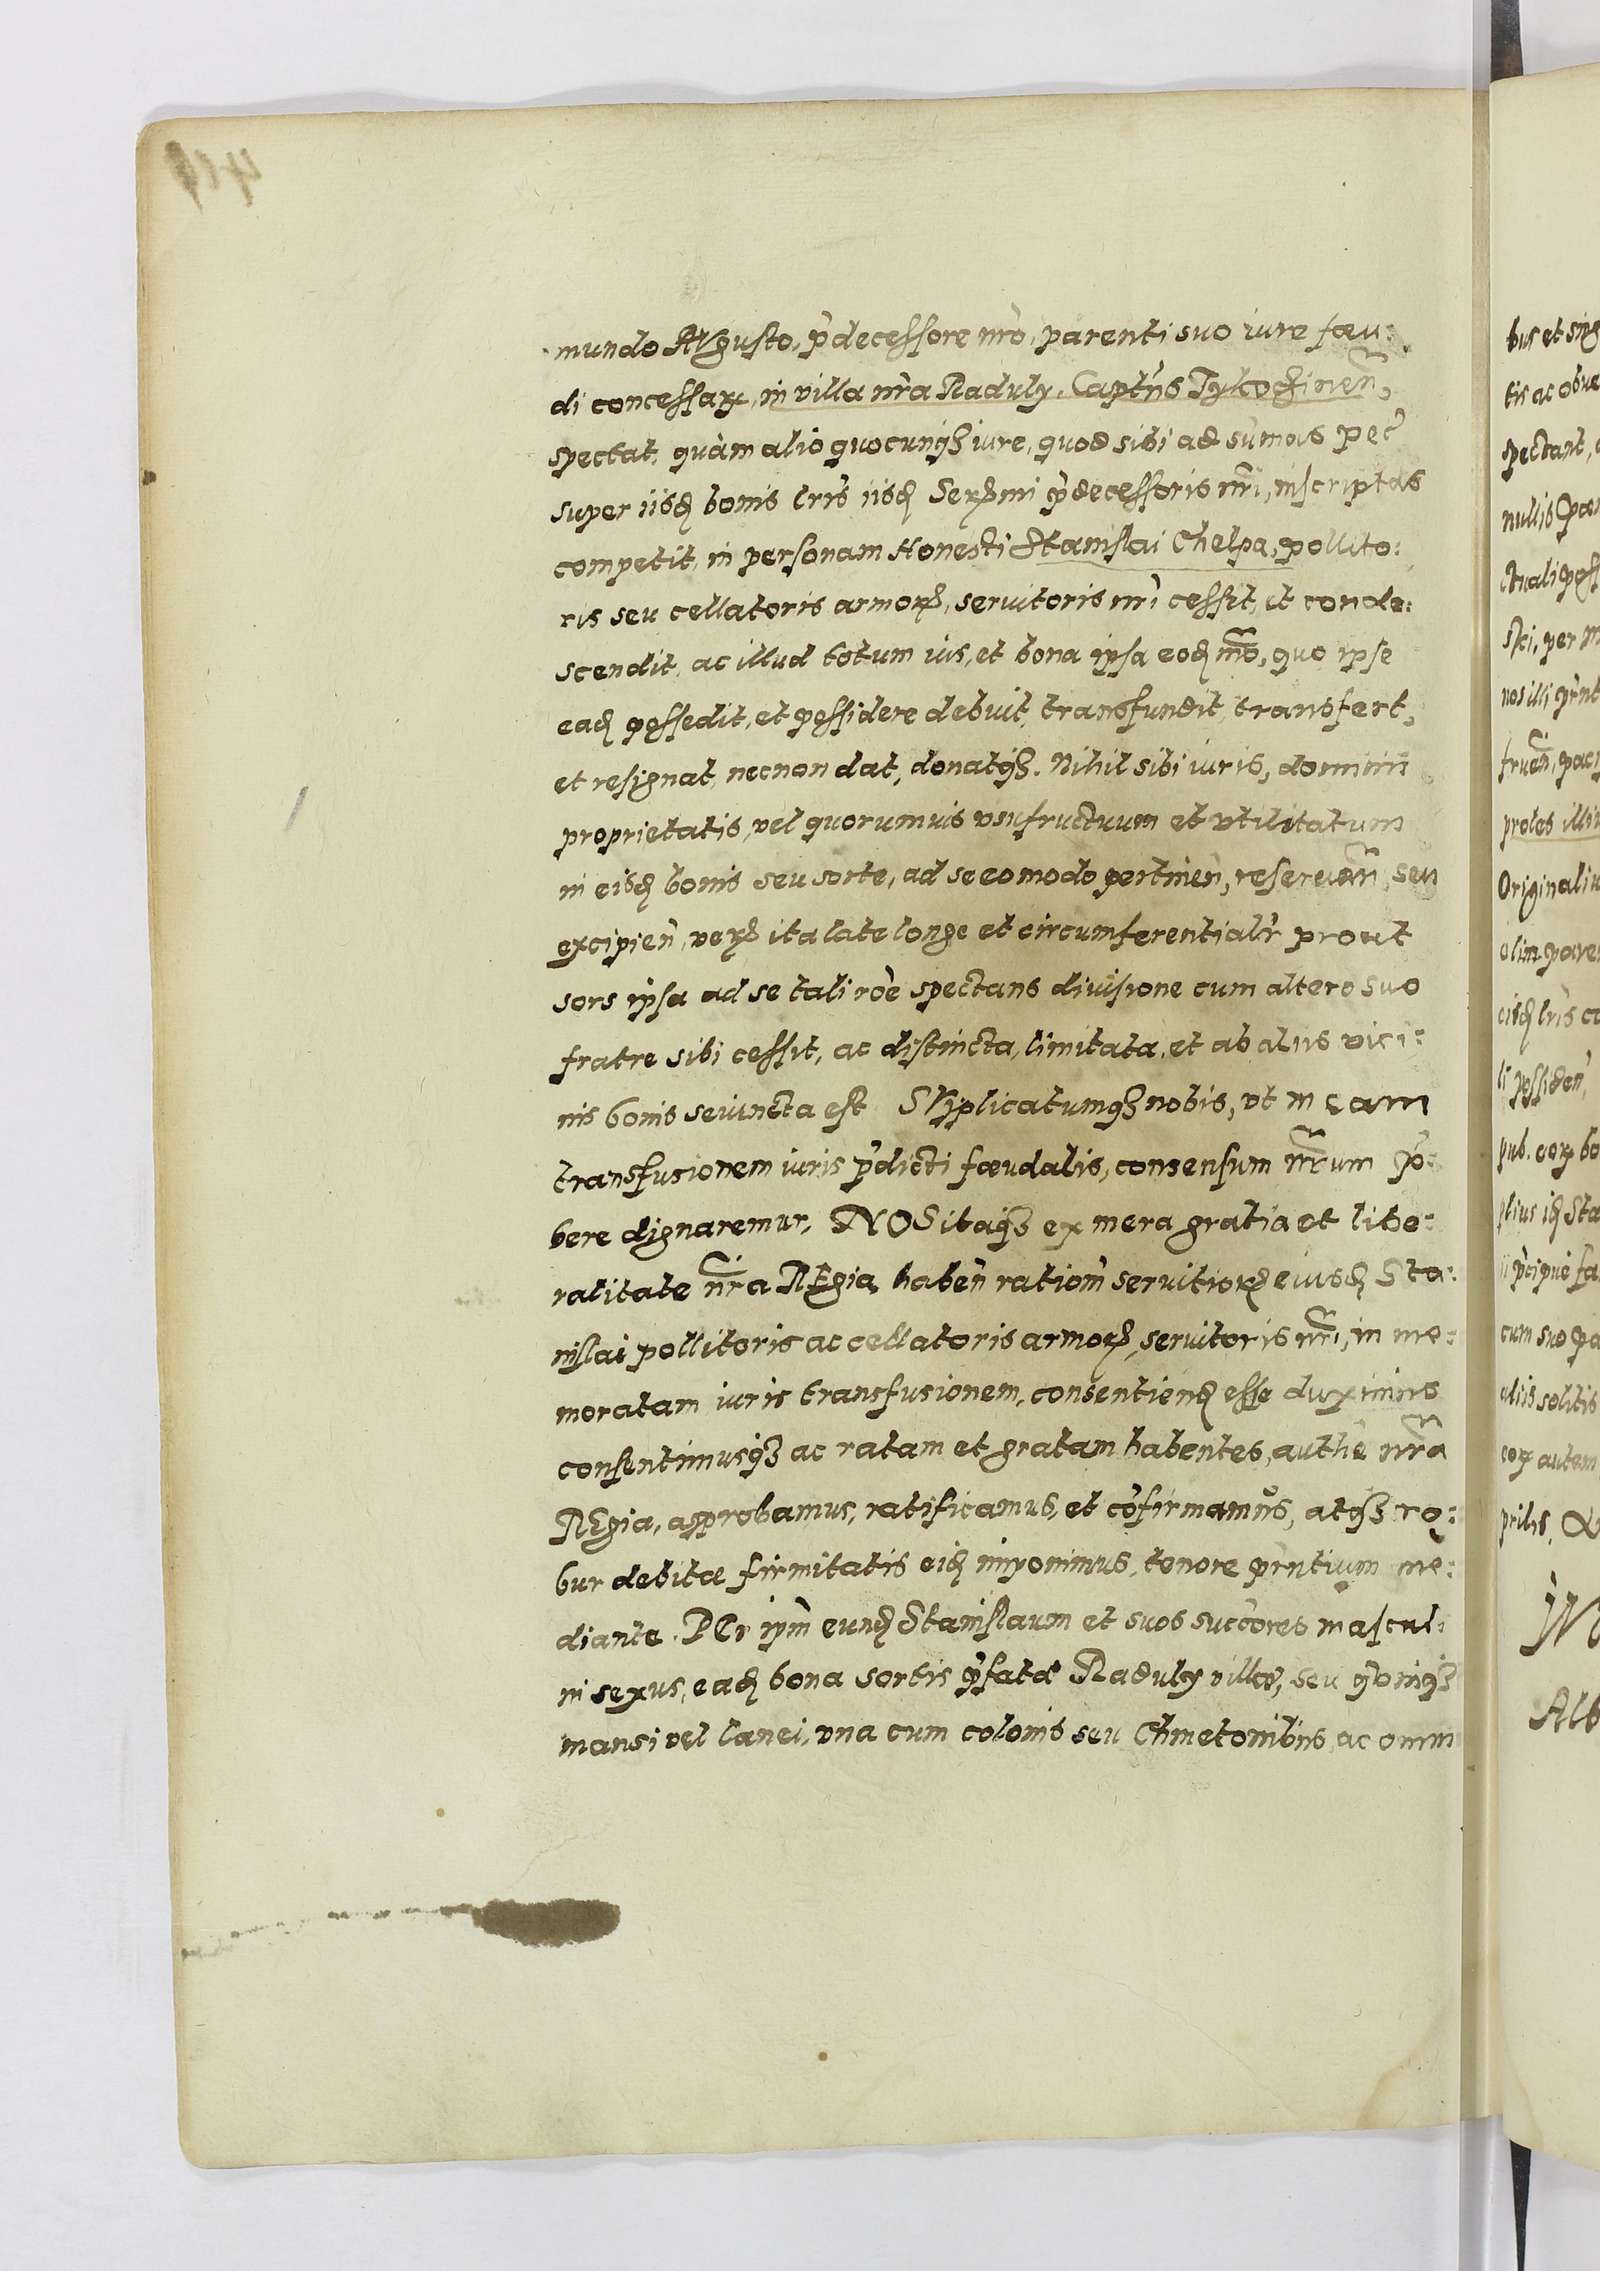 mundo AVgusto, p̃decessore nr̃o, parenti suo iure fœu:
di concessaꝝ, in villa nr̃a Raduly, Captñs Tykoczineñ,
spectat, quàm alio quocunqꝫ iure, quod sibi ad sum̃as pec̃
super iisdꝫ bonis lr̃is iisdꝫ Serꝫmi p̃decessoris nr̃i, inscriptas
competit, in personam Honesti Stanislai Chelpa, pollito:
ris seu cellatoris armoꝝ, servitoris nr̃i cessit, et conde:
scendit, ac illud totum ius, et bona ipsa eodꝫ mõ, quo ipse
eadꝫ possedit, et possidere debuit, transfundit, transfert,
et resignat, necnon dat, donatqꝫ. Nihil sibi iuris, dominii
proprietatis, vel quorumvis vsufructuum et vtilitatum
in eisdꝫ bonis seu sorte, ad se eo modo pertineñ, reservañ, seu
excipieñ, veꝝ ita late longe et circumferentialr̃ prout
sors ipsa ad se tali rõe spectans divisione cum altero suo
fratre sibi cessit, ac distincta, limitata, et ab aliis vici:
nis bonis seiuncta est SVpplicatumqꝫ nobis, vt in eam
transfusionem iuris p̃dicti fœudalis, consensum nr̃um p̃:
bere dignaremur, NOS itaqꝫ ex mera gratia et libe:
ralitate nr̃a REgia habeñ rationm̃ servitioꝝ eiusdꝫ Sta:
nislai pollitoris ac cellatoris armoꝝ, servitoris nr̃i, in me:
moratam iuris transfusionem, consentiendꝫ esse duximus
consentimusqꝫ ac ratam et gratam habentes, authẽ nr̃a
REgia, approbamus, ratificamus, et cõfirmamus, atqꝫ ro:
bur debitæ firmitatis eidꝫ imponimus, tenore pr̃ntium me:
diante. PEr ipm̃ eundꝫ Stanislaum et suos succõres mascul:
ni sexus, eadꝫ bona sortis p̃fatæ Raduly villæ, seu
mansi vel lanei, vna cum colonis seu Chmetonibus ac omni
bus et sing
tis ac obve
spectant,
nullis
per m
nos illi pr̃nt
fruen̄,
proles illi
Originaliu
olim pare
eisdꝫ lr̃is
possideñ,
pub. eoꝝ bo
plius idꝫ Sta
cum suo pa
aliis solitis
eoꝝ autem
prilis,
Alb